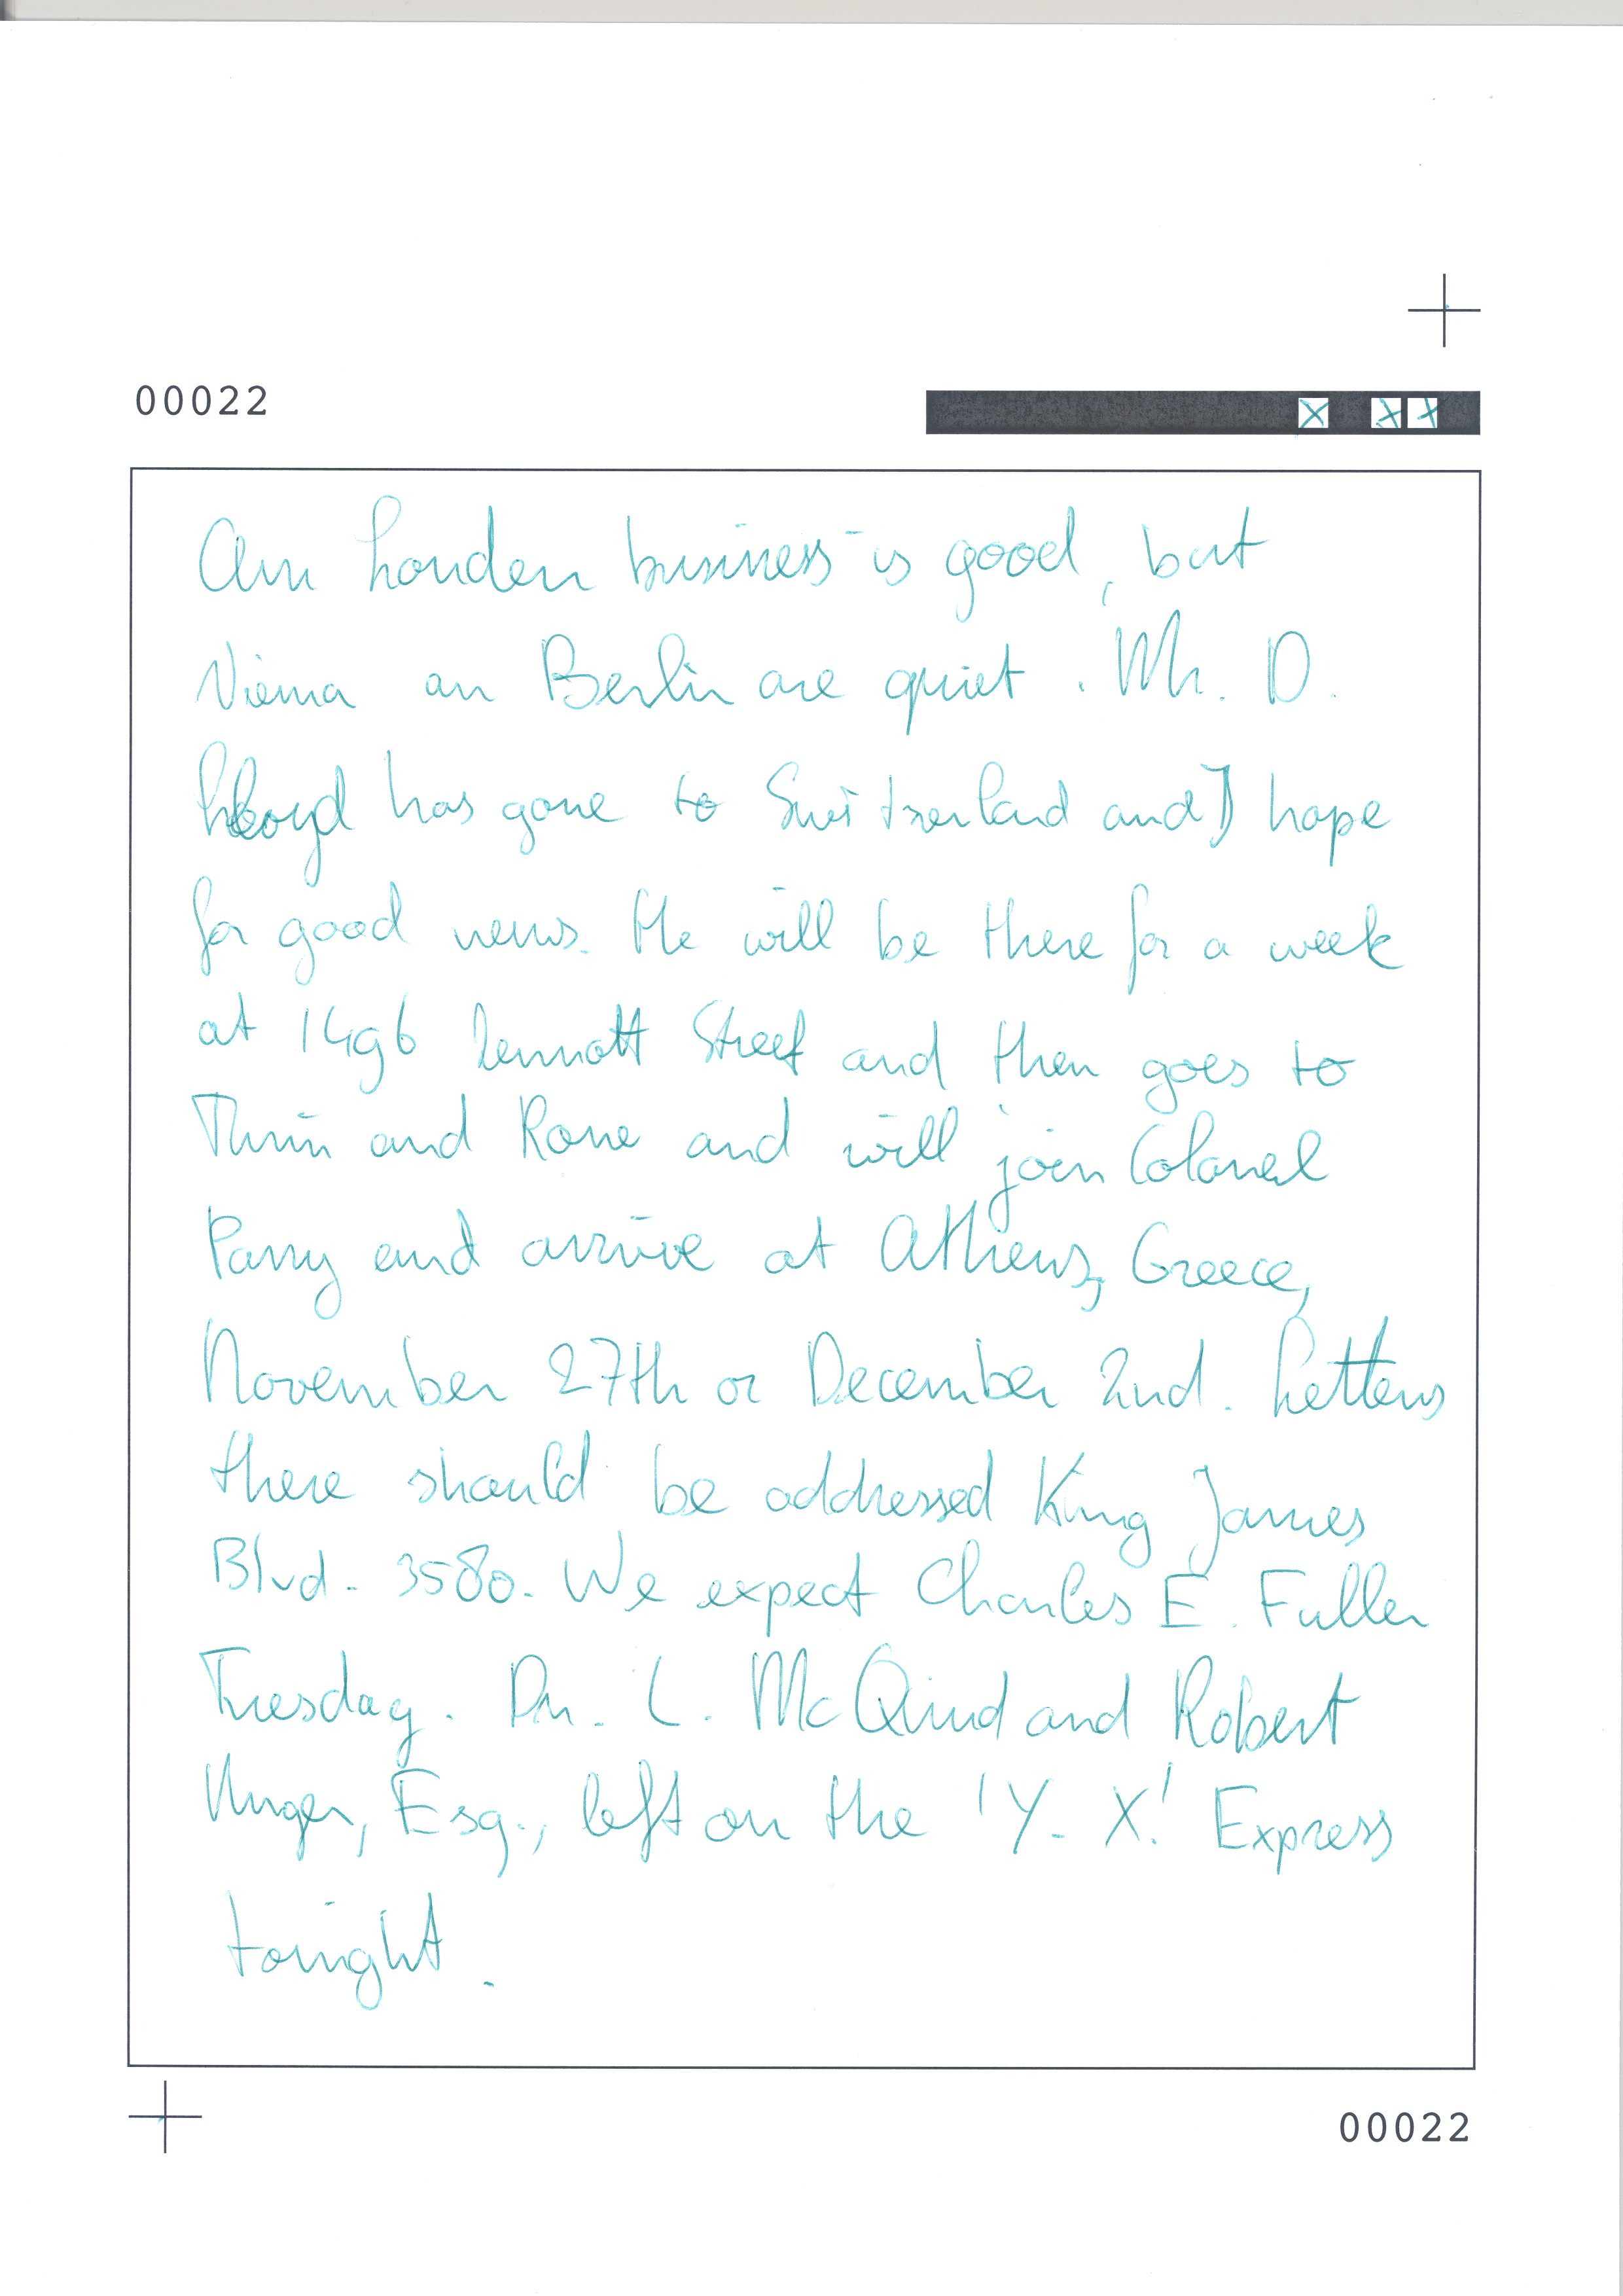 00022
Our London business is good, but
Vienna an Berlin are quiet. Mr. D.
Lloyd has gone to Switzerland and I hope
for good news. He will be there for a week
at 1496 Zermott Street and then goes to
Turin and Rome and will join Colonel
Parry and arrive at Athens, Greece,
November 27th or December 2nd. Letters
there should be addressed King James
Blvd. 3580. We expect Charles E. Fuller
Tuesday. Dr. L. McQuid and Robert
Unger, Esq., left on the 'Y. X.' Express
tonight.
00022